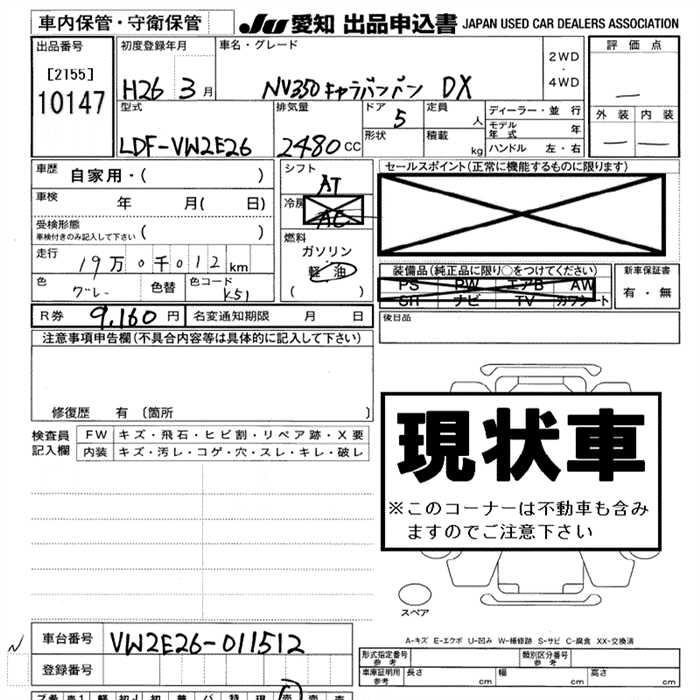 車内保管・守衛保管
JU 愛知 出品申込書 JAPAN USED CAR DEALERS ASSOCIATION
出品番号 初度登録年月 車名・グレード 評価点
[2155]
10147
H26 3月 NV350キャラバンバン DX 2WD・4WD
型式 排気量 ドア 定員 ディーラー・並行 外装 内装
LDF-VW2E26 2480CC 5 人 モデル年式 年
形状 積載 kg ハンドル 左・右
車歴 自家用・( ) シフト AT セールスポイント(正常に機能するものに限ります)
車検 年 月( 日) 冷房 AC
受検形態 ( )
車検付きのみ記入して下さい
燃料
ガソリン
軽油
( )
走行 19万0千012km
装備品(純正品に限り○をつけてください) 新車保証書
PS PW エアB AW 有・無
SR ナビ TV カワシート
色 グレー 色替 色コード K51
R券 9,160円 名変通知期限 月 日 後日品
注意事項申告欄(不具合内容等は具体的に記入して下さい)
修復歴 有〔箇所 〕
検査員記入欄 FW キズ・飛石・ヒビ割・リペア跡・X要
内装 キズ・汚レ・コゲ・穴・スレ・キレ・破レ
現状車
※このコーナーは不動車も含み
ますのでご注意下さい
スペア
A-キズ E-エクボ U-凹み W-補修跡 S-サビ C-腐食 XX-交換済
車台番号 VW2E26-011512
登録番号
型式指定番号 参考 類別区分番号 参考
車庫証明用 参考 長さ cm 幅 cm 高さ cm